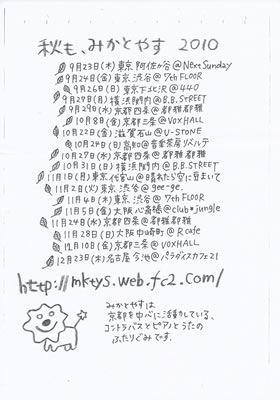 秋も、みかとやす 2010
9月23日(木)東京 阿佐ヶ谷@Next Sunday
9月24日(金)東京 渋谷@7th FLOOR
9月26日(日)東京下北沢@440
9月29日(月)横浜関内@B.B.STREET
9月29日(水)京都四条@都雅都雅
10月8日(金)京都三条@VOXHALL
10月22日(金)滋賀石山@U-STONE
10月24日(日)高知@音楽茶房リバルテ
10月27日(水)京都四条@都雅都雅
10月31日(日)横浜関内@B.B.STREET
11月1日(月)東京代官山@晴れたら空に豆まいて
11月2日(火)東京 渋谷@gee-ge.
11月4日(木)東京 渋谷@7th FLOOR
11月5日(金)大阪 心斎橋@club★jungle
11月24日(水)京都四条@都雅都雅
11月28日(日)大阪中崎町@R cafe
12月10日(金)京都三条@VOXHALL
12月23日(木)名古屋 今池@パラダイスカフェ21
http://mktys.web.fc2.com/
みかとやすは
京都を中心に活動している、
コントラバスとピアノとうたの
ふたりぐみです。